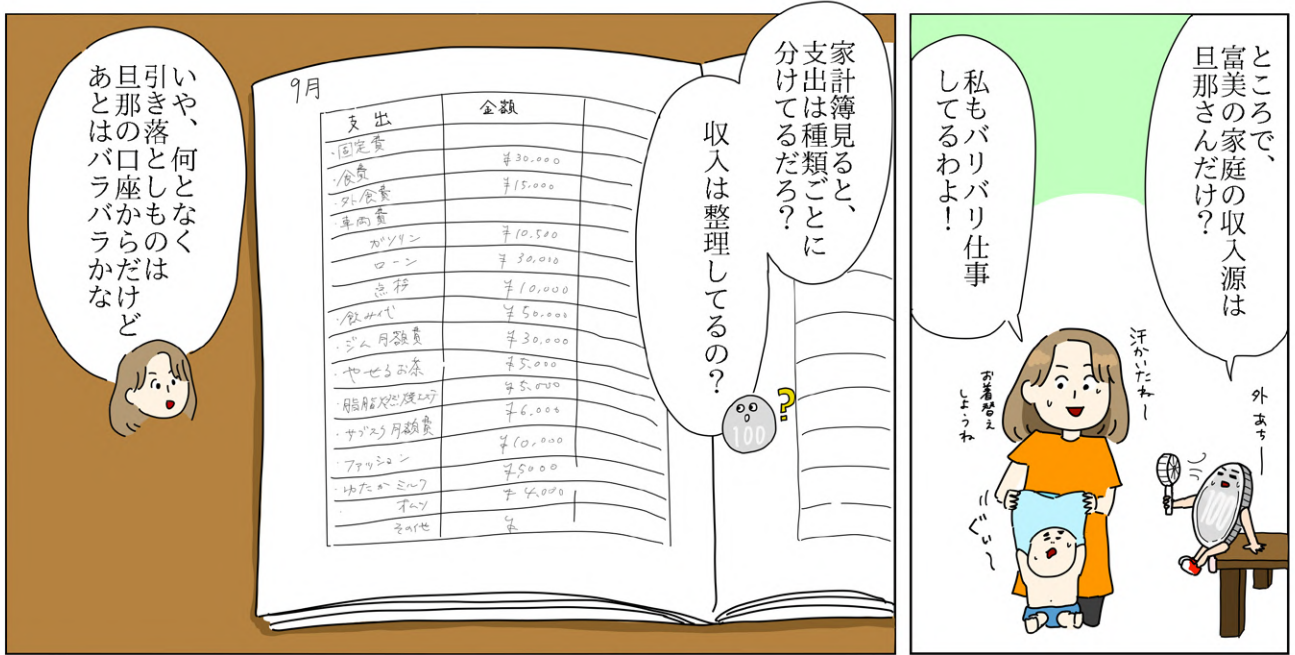 ところで、
富美の家庭の収入源は
旦那さんだけ？
私もバリバリ仕事
してるわよ！
外あち〜
汗かいたね〜
お着替え
しようね
ぐい〜
100
家計簿見ると、
支出は種類ごとに
分けてるだろ？
収入は整理してるの？
?
100
9月
支出 金額
・固定費
・食費 ¥30,000
・外食費 ¥15,000
・車両費
ガソリン ¥10,500
ローン ¥30,000
点検 ¥10,000
・飲み代 ¥50,000
・ジム月額費 ¥30,000
・やせるお茶 ¥5,000
・脂肪燃焼エステ ¥5,000
・サブスク月額費 ¥6,000
・ファッション ¥10,000
・ゆたかミルク ¥5,000
・オムツ ¥4,000
その他 ¥
いや、何となく
引き落としものは
旦那の口座からだけど
あとはバラバラかな